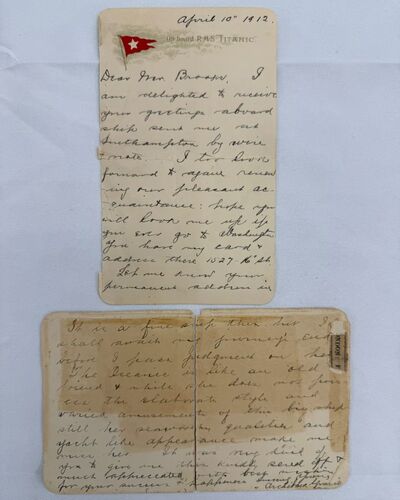 April 10th 1912.
On board R.M.S. "TITANIC".
Dear Mrs. Brooke, I
am delighted to receive
your greetings aboard
ship sent me at
Southampton by wire
& note. I too look
forward to again renew
ing our pleasant ac-
quaintance: hope you
will look me up if
you ever go to Washington
You have my card &
address there 1527 16th St.
Let me know your
permanent address in
It is a fine ship this but I
shall await my journey's end
before I pass judgment on her
The Oceanic is like an old
friend & while she does not poss
ess the elaborate style and
varied amusements of this big ship
still her seaworthy qualities and
yacht like appearance make me
miss her. It was very kind of
you to give me this kindly send off &
much appreciated with best wishes
for your success & happiness
Archibald Gracie